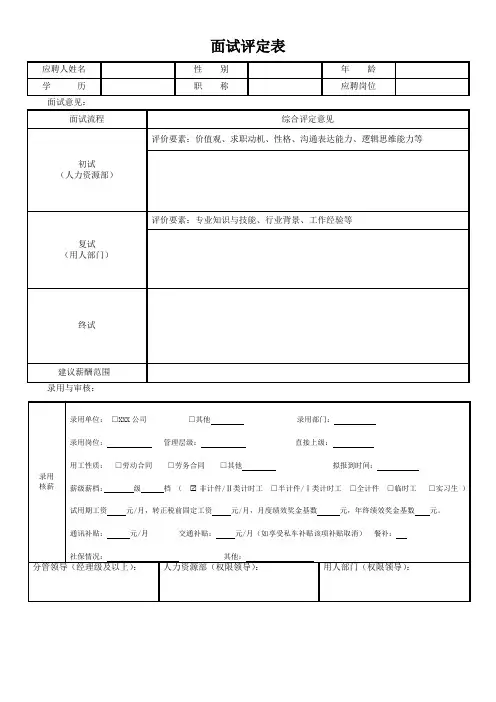 面试评定表
应聘人姓名 性 别 年 龄
学 历 职 称 应聘岗位
面试意见：
面试流程 综合评定意见
初试
（人力资源部）
评价要素：价值观、求职动机、性格、沟通表达能力、逻辑思维能力等
复试
（用人部门）
评价要素：专业知识与技能、行业背景、工作经验等
终试
建议薪酬范围
录用与审核：
录用
核薪
录用单位： □XXX公司 □其他 录用部门：
录用岗位： 管理层级： 直接上级：
用工性质： □劳动合同 □劳务合同 □其他 拟报到时间：
薪级薪档： 级 档（ ☑非计件/Ⅱ类计时工 □半计件/Ⅰ类计时工 □全计件 □临时工 □实习生 ）
试用期工资 元/月，转正税前固定工资 元/月，月度绩效奖金基数 元，年终绩效奖金基数 元。
通讯补贴： 元/月 交通补贴： 元/月（如享受私车补贴该项补贴取消） 餐补：
社保情况： 其他：
分管领导（经理级及以上）： 人力资源部（权限领导）： 用人部门（权限领导）：